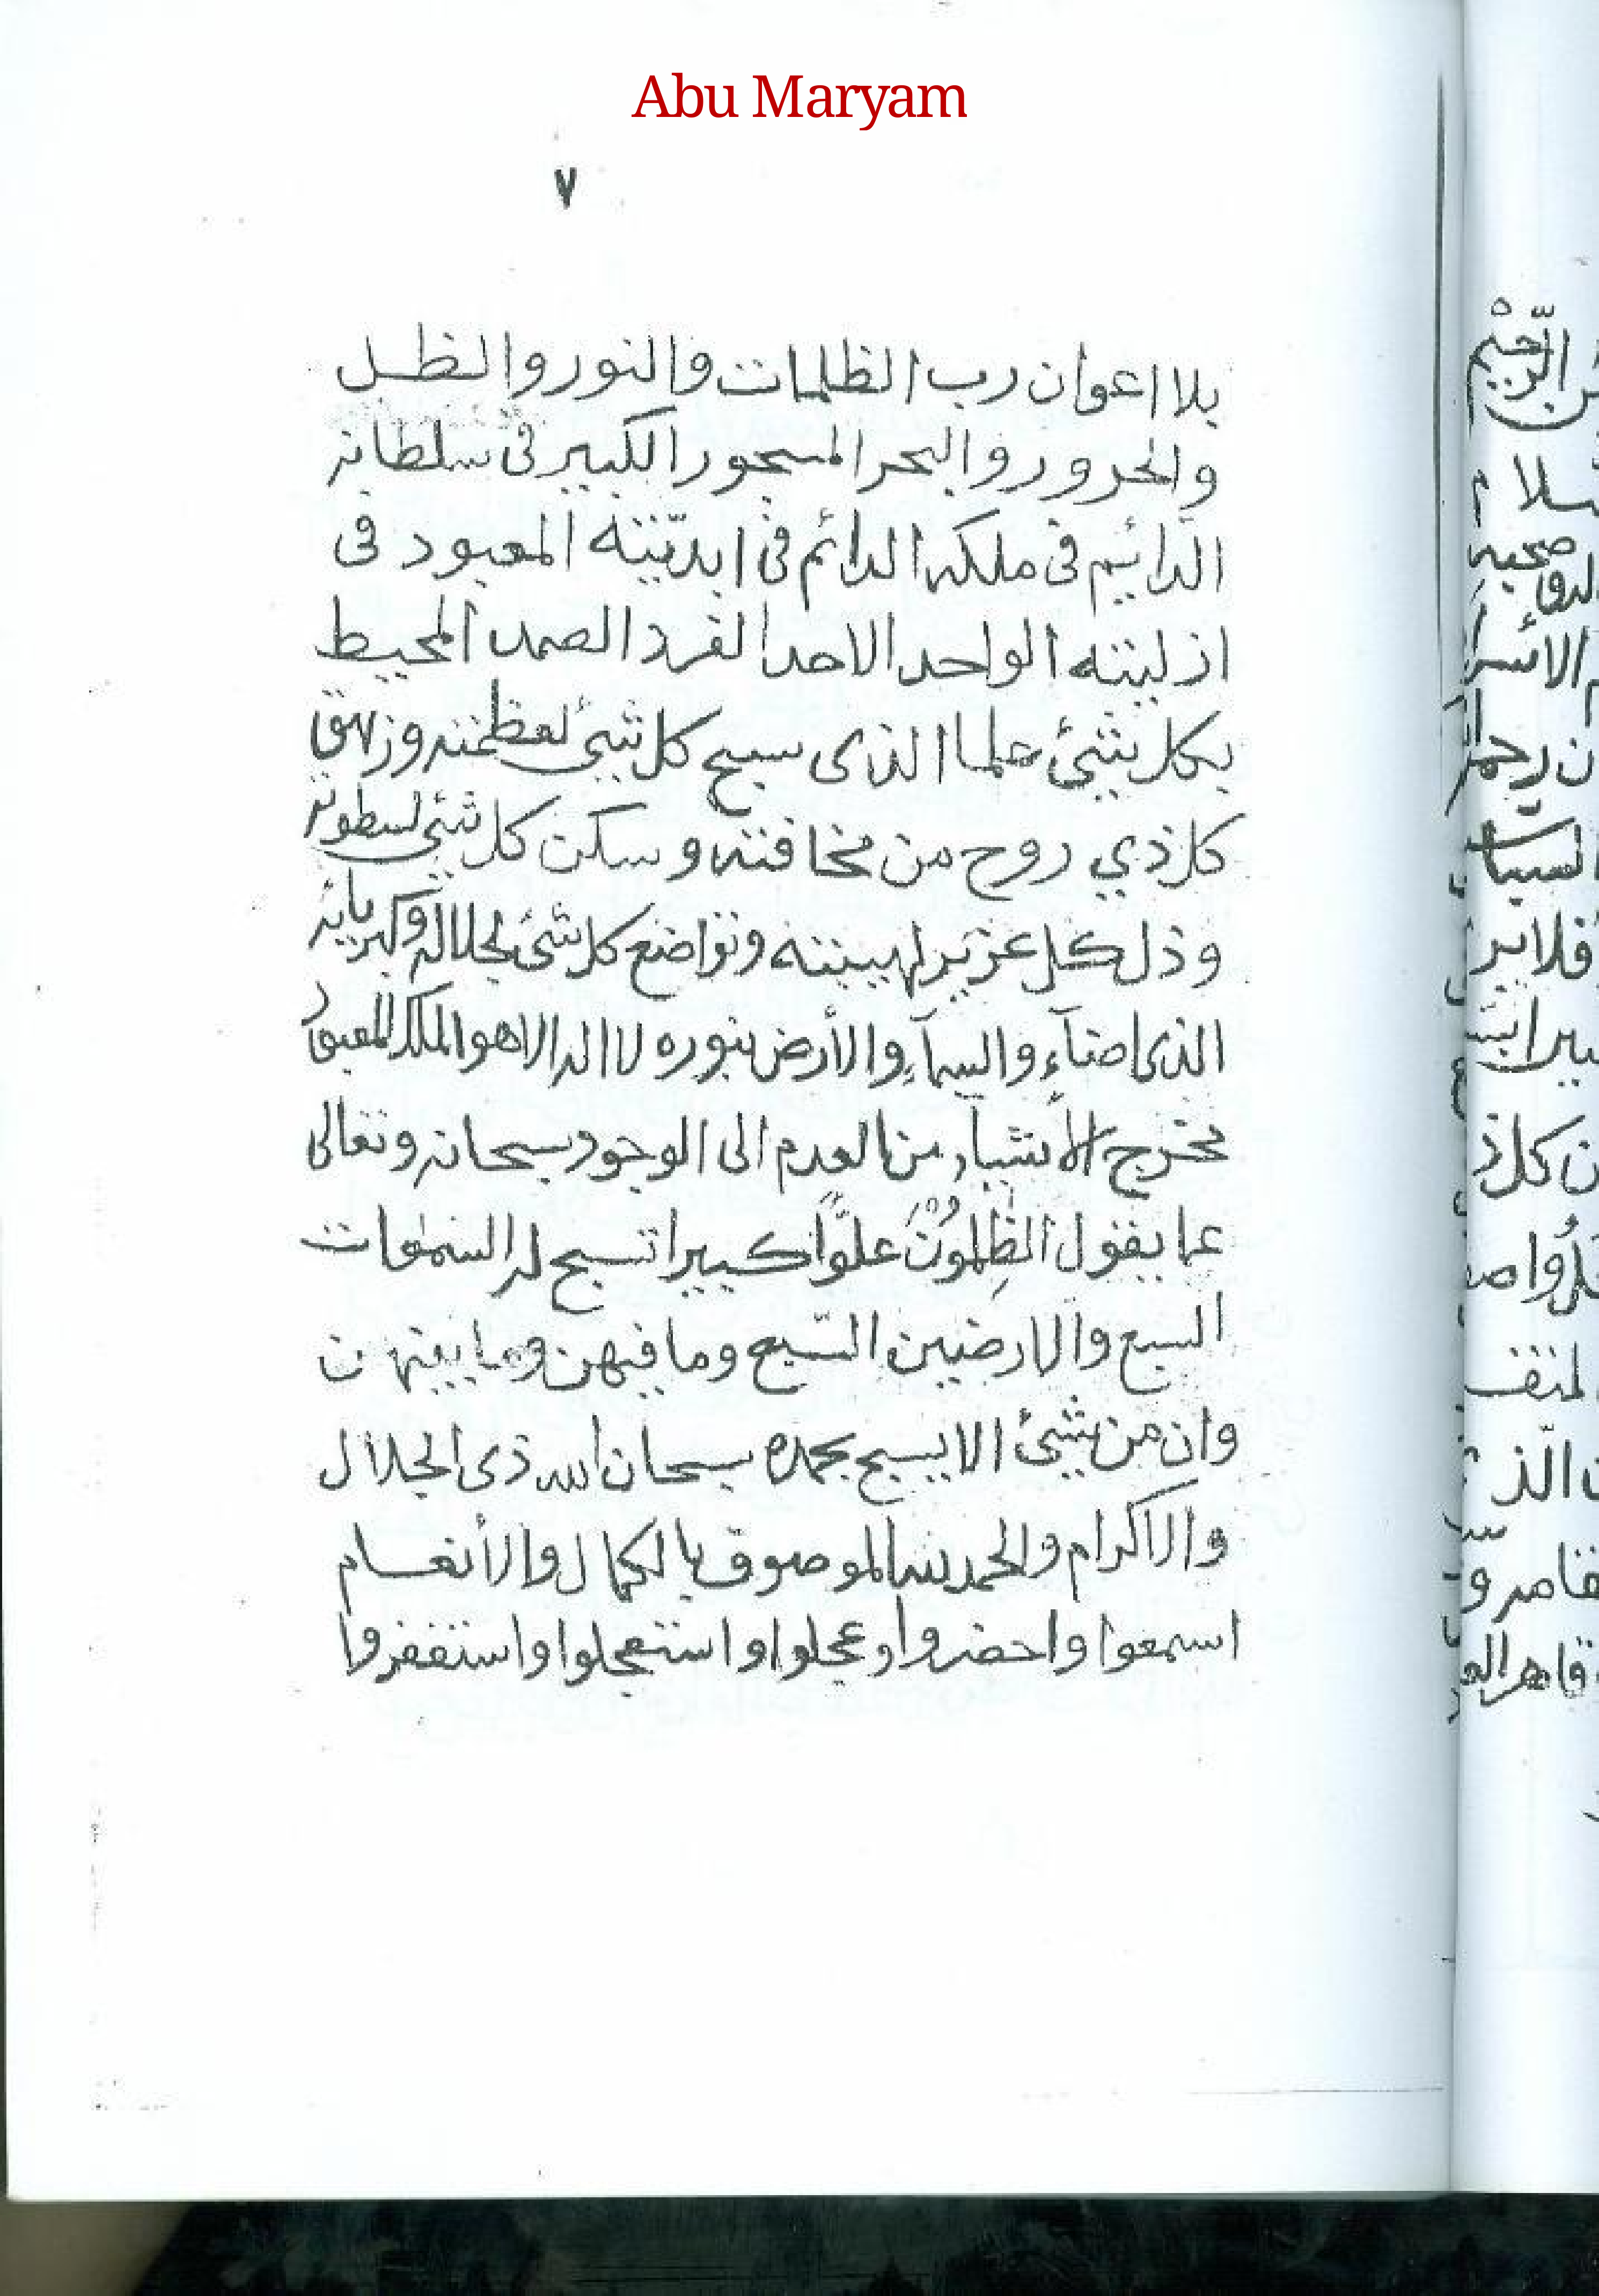 Abu Maryam
٧
بلا اعوان رب الظلمات والنور والظل
والحرور والبحر المسجور الكبير فى سلطانه
الدائيم فى ملكه الدائم فى ابديّته المعبود فى
ازليته الواحد الاحد الفرد الصمد المحيط
بكل شئ علما الذى سبح كل شئ لعظمته وزهق
كل ذي روح من مخافته وسكن كل شئ لسطوته
وذل كل عزيز لهيبته وتواضع كل شئ لجلاله وكبريائه
الذى اضآء والسمآء والأرض بنوره لا اله الا هو الملك المعبود
مخرج الأشيآء من العدم الى الوجود سبحانه وتعالى
عما يقول الظٰلِمُوْنَ علوًّا كبيرا تسبح له السمٰوات
السبع والارضين السّبع وما فيهن وما بينهن
وان من شئ الا يسبح بحمده سبحان الله ذى الجلال
والاكرام والحمد لله الموصوف بالكمال والأنعام
اسمعوا واحضروا وعجلوا واستعجلوا واستغفروا